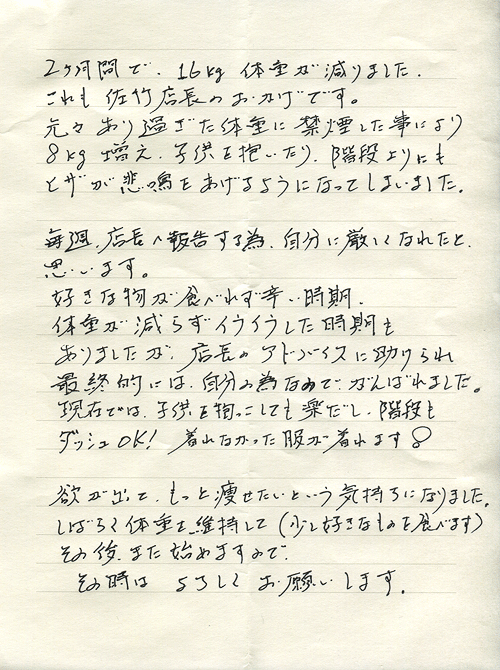 2ヶ月間で、16kg 体重が減りました。
これも 佐竹店長のおかげです。
元々あり過ぎた体重に禁煙した事により
8kg 増え、子供を抱いたり、階段よりにも
ヒザが悲鳴をあげるようになってしまいました。
毎週、店長へ報告する為、自分に厳しくなれたと、
思います。
好きな物が食べれず辛い時期、
体重が減らずイライラした時期も
ありましたが、店長のアドバイスに助けられ
最終的には、自分の為なので、がんばれました。
現在では、子供を抱っこしても楽だし、階段も
ダッシュOK! 着れなかった服が着れます
欲が出て、もっと痩せたいという気持ちになりました。
しばらく体重を維持して(少し好きなものを食べます)
その後、また始めますので、
その時は よろしく お願いします。